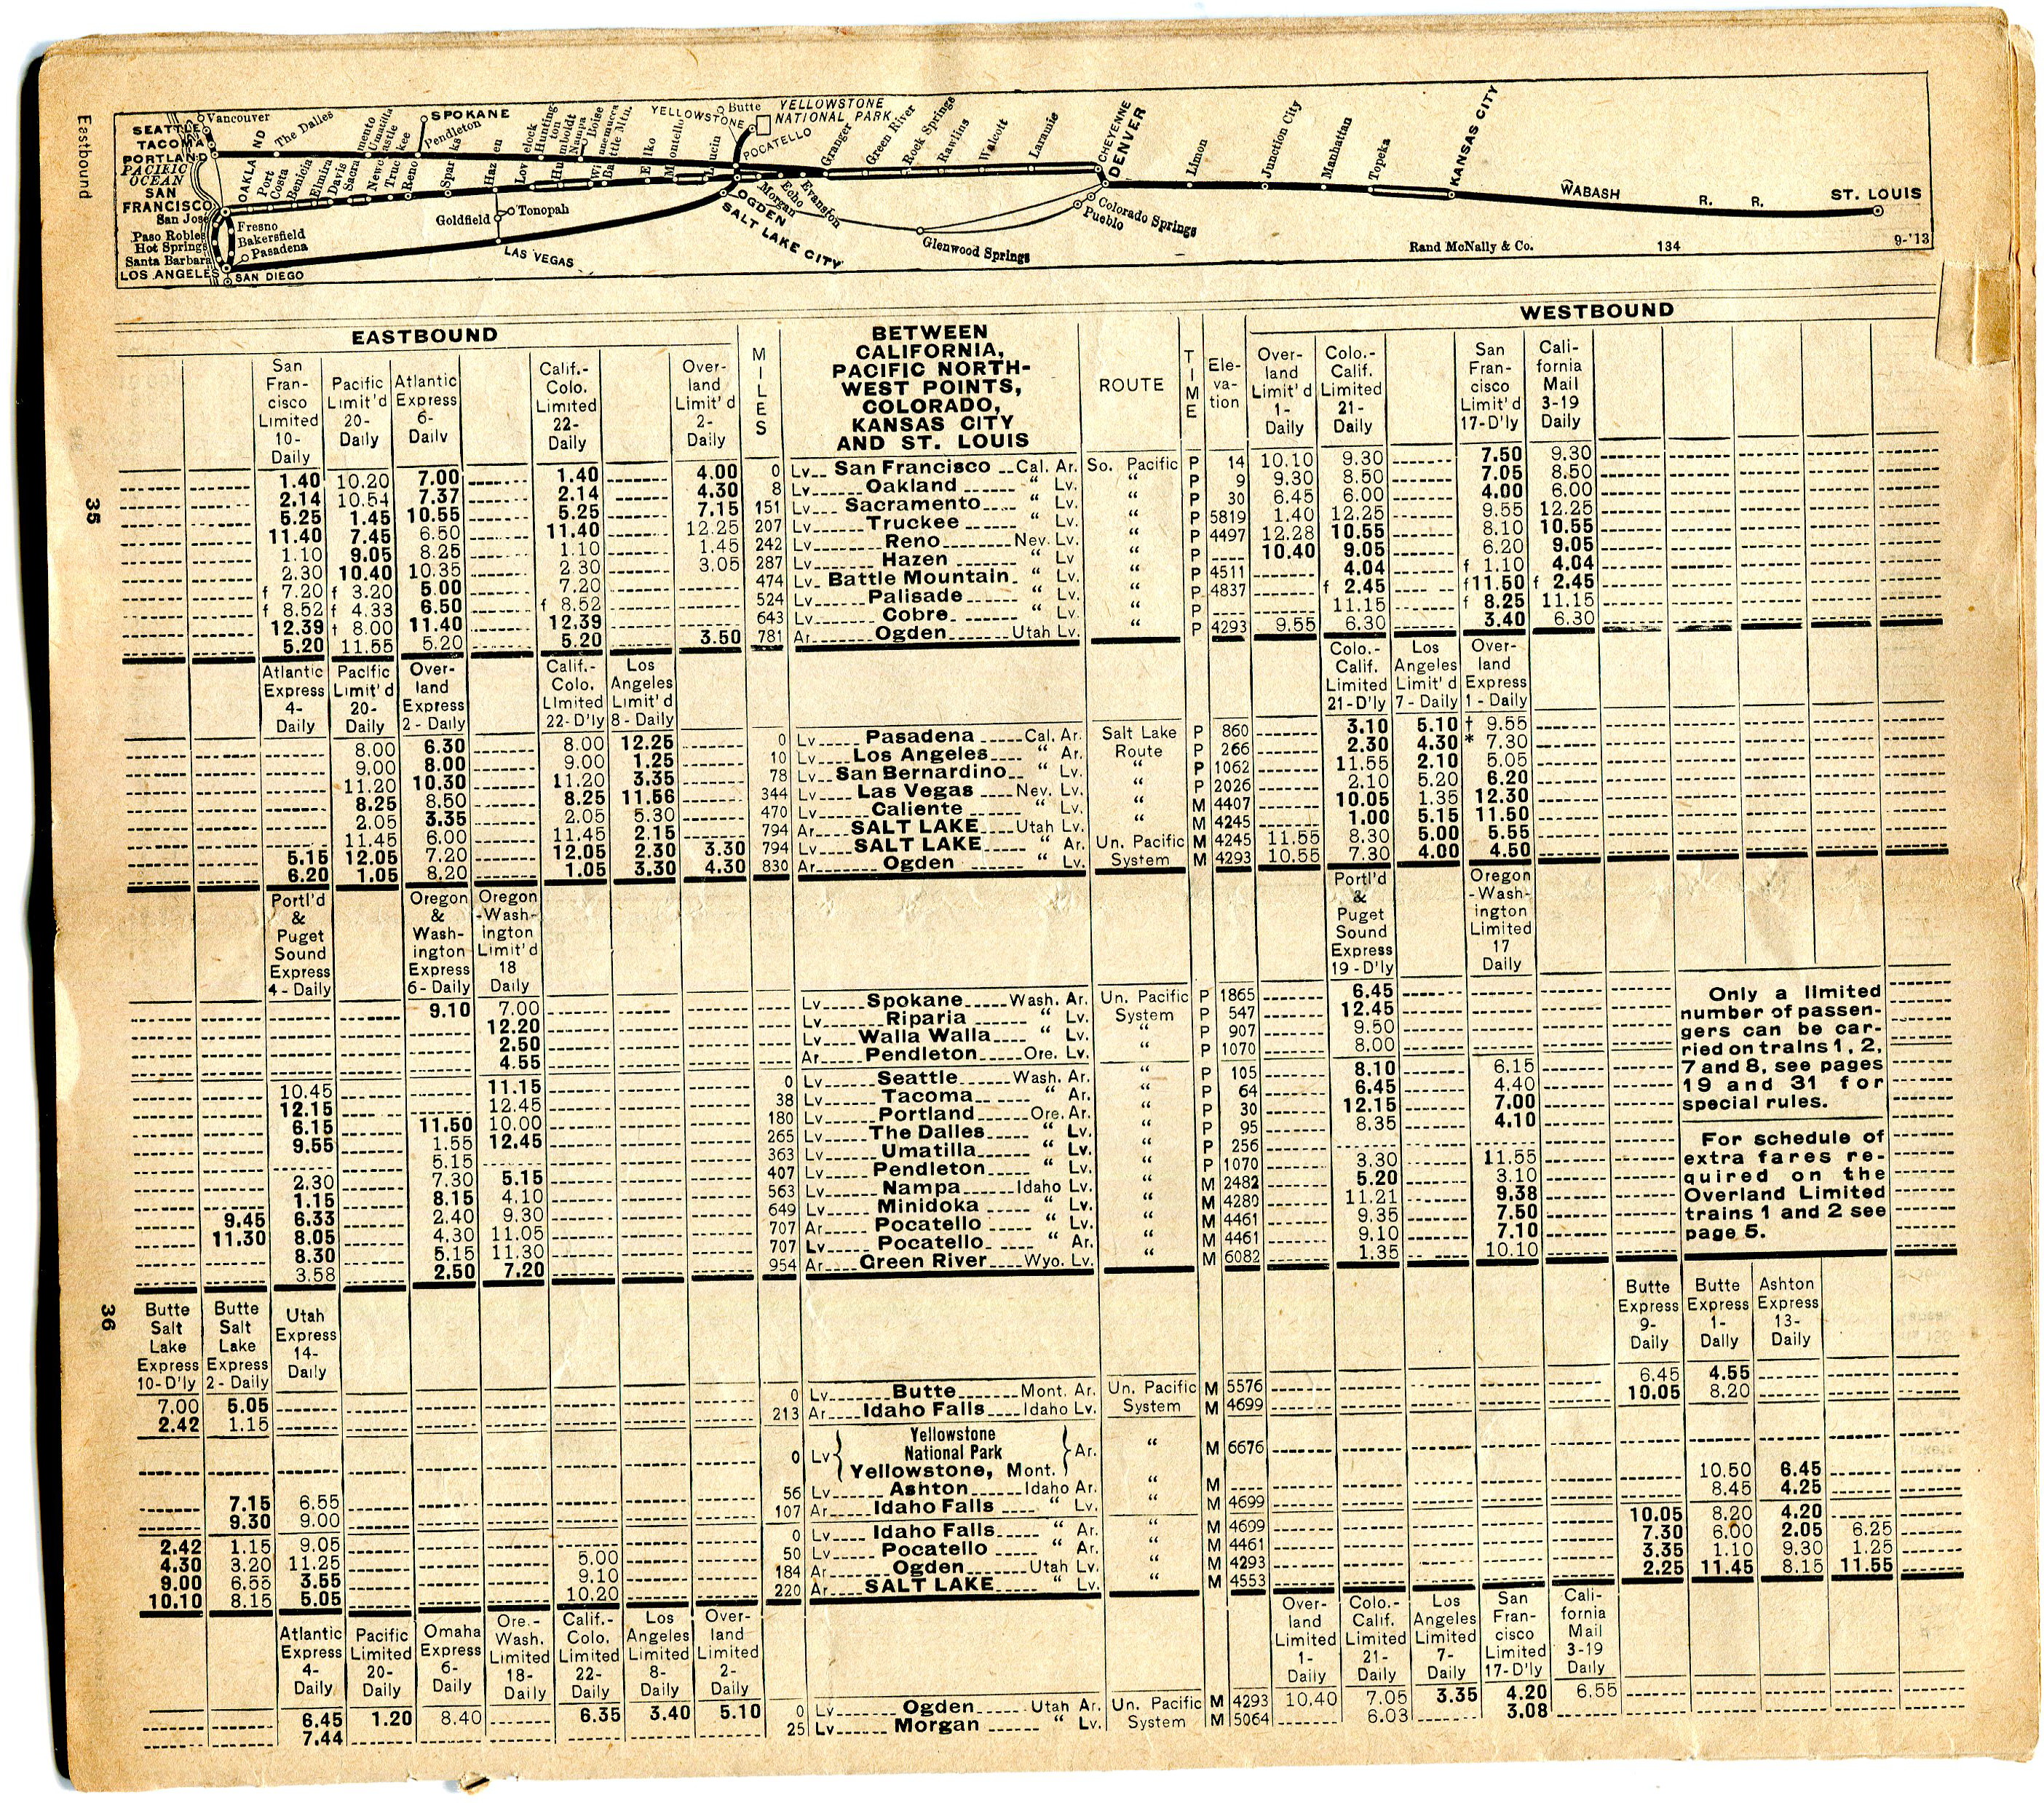 Eastbound
35
36
SEATTLE
TACOMA
PORTLAND
PACIFIC
OCEAN
SAN
FRANCISCO
San Jose
Paso Robles
Hot Springs
Santa Barbara
LOS ANGELES
Vancouver
Fresno
Bakersfield
Pasadena
SAN DIEGO
OAKLAND
The Dalles
Port Costa
Benicia
Elmira
Davis
Sacramento
Umatilla
Newcastle
Truckee
Reno
SPOKANE
Pendleton
Sparks
Hazen
Lovelock
Huntington
Humboldt
Nampa
Boise
Winnemucca
Battle Mtn.
Elko
Montello
Lucin
YELLOWSTONE
Butte
YELLOWSTONE
NATIONAL PARK
POCATELLO
Goldfield
Tonopah
LAS VEGAS
OGDEN
SALT LAKE CITY
Morgan
Echo
Evanston
Granger
Green River
Rock Springs
Rawlins
Walcott
Laramie
CHEYENNE
DENVER
Glenwood Springs
Colorado Springs
Pueblo
Limon
Junction City
Manhattan
Topeka
KANSAS CITY
WABASH R. R.
ST. LOUIS
Rand McNally & Co. 134 9-'13
EASTBOUND
San Francisco Limited 10- Daily
Pacific Limit'd 20- Daily
Atlantic Express 6- Daily
Calif.-Colo. Limited 22- Daily
Overland Limit'd 2- Daily
MILES
BETWEEN
CALIFORNIA,
PACIFIC NORTH-
WEST POINTS,
COLORADO,
KANSAS CITY
AND ST. LOUIS
ROUTE
TIME
Elevation
WESTBOUND
Overland Limit'd 1- Daily
Colo.-Calif. Limited 21- Daily
San Francisco Limit'd 17-D'ly
California Mail 3-19 Daily
1.40 10.20 7.00 1.40 4.00 0 Lv San Francisco Cal. Ar. So. Pacific P 14 10.10 9.30 7.50 9.30
2.14 10.54 7.37 2.14 4.30 8 Lv Oakland " Lv. " P 9 9.30 8.50 7.05 8.50
5.25 1.45 10.55 5.25 7.15 151 Lv Sacramento " Lv. " P 30 6.45 6.00 4.00 6.00
11.40 7.45 6.50 11.40 12.25 207 Lv Truckee " Lv. " P 5819 1.40 12.25 9.55 12.25
1.10 9.05 8.25 1.10 1.45 242 Lv Reno Nev. Lv. " P 4497 12.28 10.55 8.10 10.55
2.30 10.40 10.35 2.30 3.05 287 Lv Hazen " Lv " P 10.40 9.05 6.20 9.05
f 7.20 f 3.20 5.00 7.20 474 Lv Battle Mountain " Lv. " P 4511 4.04 f 1.10 4.04
f 8.52 f 4.33 6.50 f 8.52 524 Lv Palisade " Lv. " P 4837 f 2.45 f 11.50 f 2.45
12.39 † 8.00 11.40 12.39 643 Lv Cobre " Lv. " P 11.15 f 8.25 11.15
5.20 11.55 5.20 5.20 3.50 781 Ar Ogden Utah Lv. " P 4293 9.55 6.30 3.40 6.30
Atlantic Express 4- Daily
Pacific Limit'd 20- Daily
Overland Express 2 - Daily
Calif.-Colo. Limited 22-D'ly
Los Angeles Limit'd 8 - Daily
Colo.-Calif. Limited 21-D'ly
Los Angeles Limit'd 7 - Daily
Overland Express 1 - Daily
8.00 6.30 8.00 12.25 0 Lv Pasadena Cal. Ar. Salt Lake P 860 3.10 5.10 † 9.55
9.00 8.00 9.00 1.25 10 Lv Los Angeles " Ar. Route P 266 2.30 4.30 * 7.30
11.20 10.30 11.20 3.35 78 Lv San Bernardino " Lv. " P 1062 11.55 2.10 5.05
8.25 8.50 8.25 11.56 344 Lv Las Vegas Nev. Lv. " P 2026 2.10 5.20 6.20
2.05 3.35 2.05 5.30 470 Lv Caliente " Lv. " M 4407 10.05 1.35 12.30
11.45 6.00 11.45 2.15 794 Ar SALT LAKE Utah Lv. " M 4245 1.00 5.15 11.50
5.15 12.05 7.20 12.05 2.30 3.30 794 Lv SALT LAKE " Ar. Un. Pacific M 4245 11.55 8.30 5.00 5.55
6.20 1.05 8.20 1.05 3.30 4.30 830 Ar Ogden " Lv. System M 4293 10.55 7.30 4.00 4.50
Portl'd & Puget Sound Express 4 - Daily
Oregon & Washington Express 6- Daily
Oregon -Washington Limit'd 18 Daily
Portl'd & Puget Sound Express 19 - D'ly
Oregon -Washington Limited 17 Daily
9.10 7.00 Lv Spokane Wash. Ar. Un. Pacific P 1865 6.45
12.20 Lv Riparia " Lv. System P 547 12.45
2.50 Lv Walla Walla " Lv. " P 907 9.50
4.55 Ar Pendleton Ore. Lv. " P 1070 8.00
10.45 11.15 0 Lv Seattle Wash. Ar. " P 105 8.10 6.15
12.15 12.45 38 Lv Tacoma " Ar. " P 64 6.45 4.40
6.15 11.50 10.00 180 Lv Portland Ore. Ar. " P 30 12.15 7.00
9.55 1.55 12.45 265 Lv The Dalles " Lv. " P 95 8.35 4.10
5.15 363 Lv Umatilla " Lv. " P 256
2.30 7.30 5.15 407 Lv Pendleton " Lv. " P 1070 3.30 11.55
1.15 8.15 4.10 563 Lv Nampa Idaho Lv. " M 2482 5.20 3.10
9.45 6.33 2.40 9.30 649 Lv Minidoka " Lv. " M 4280 11.21 9.38
11.30 8.05 4.30 11.05 707 Ar Pocatello " Lv. " M 4461 9.35 7.50
8.30 5.15 11.30 707 Lv Pocatello " Ar. " M 4461 9.10 7.10
3.58 2.50 7.20 954 Ar Green River Wyo. Lv. " M 6082 1.35 10.10
Only a limited
number of passen-
gers can be car-
ried on trains 1, 2,
7 and 8, see pages
19 and 31 for
special rules.
For schedule of
extra fares re-
quired on the
Overland Limited
trains 1 and 2 see
page 5.
Butte Salt Lake Express 10-D'ly
Butte Salt Lake Express 2 - Daily
Utah Express 14- Daily
Butte Express 9- Daily
Butte Express 1- Daily
Ashton Express 13- Daily
7.00 5.05 0 Lv Butte Mont. Ar. Un. Pacific M 5576 6.45 4.55
2.42 1.15 213 Ar Idaho Falls Idaho Lv. System M 4699 10.05 8.20
0 Lv Yellowstone National Park Yellowstone, Mont. Ar. " M 6676
7.15 6.55 56 Lv Ashton Idaho Ar. " M 10.50 6.45
9.30 9.00 107 Ar Idaho Falls " Lv. " M 4699 8.45 4.25
2.42 1.15 9.05 0 Lv Idaho Falls " Ar. " M 4699 10.05 8.20 4.20
4.30 3.20 11.25 5.00 50 Lv Pocatello " Ar. " M 4461 7.30 6.00 2.05 6.25
9.00 6.55 3.55 9.10 184 Ar Ogden Utah Lv. " M 4293 3.35 1.10 9.30 1.25
10.10 8.15 5.05 10.20 220 Ar SALT LAKE " Lv. " M 4553 2.25 11.45 8.15 11.55
Atlantic Express 4- Daily
Pacific Limited 20- Daily
Omaha Express 6- Daily
Ore.-Wash. Limited 18- Daily
Calif.-Colo. Limited 22- Daily
Los Angeles Limited 8- Daily
Overland Limited 2- Daily
Overland Limited 1- Daily
Colo.-Calif. Limited 21- Daily
Los Angeles Limited 7- Daily
San Francisco Limited 17-D'ly
California Mail 3-19 Daily
6.45 1.20 8.40 6.35 3.40 5.10 0 Lv Ogden Utah Ar. Un. Pacific M 4293 10.40 7.05 3.35 4.20 6.55
7.44 25 Lv Morgan " Lv. System M 5064 6.03 3.08